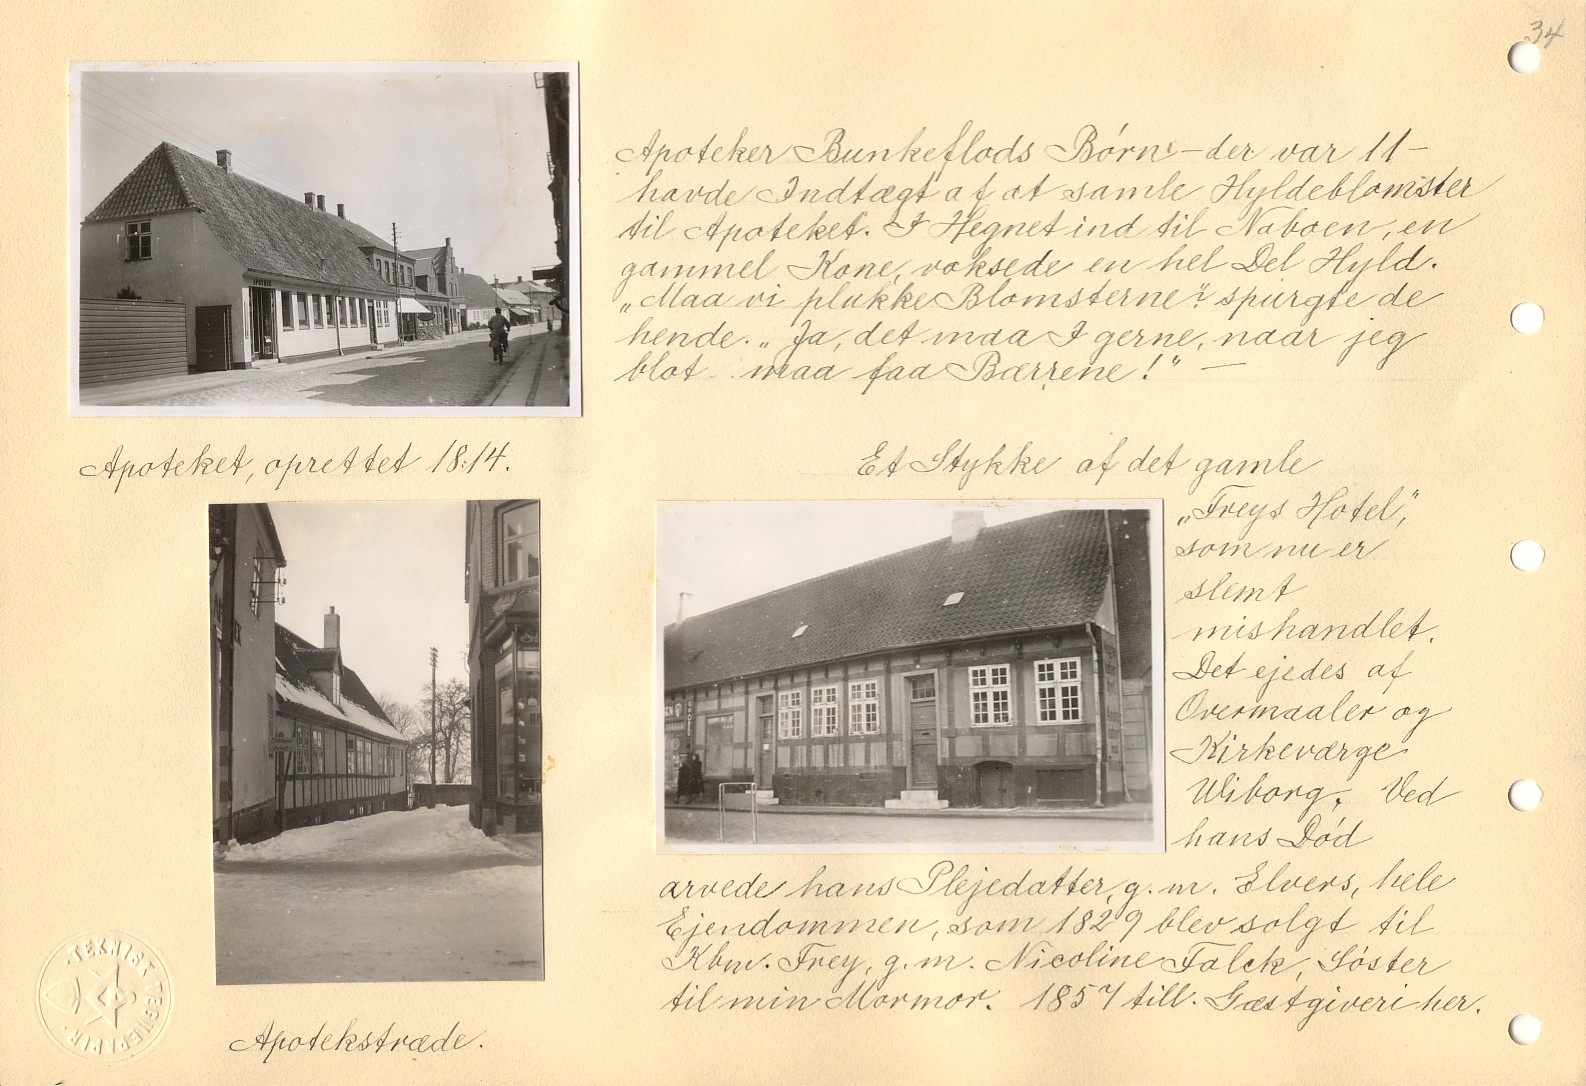 34
Apoteker Bunkeflods Børn – der var 11 –
havde Indtægt af at samle Hyldeblomster
til Apoteket. I Hegnet ind til Naboen, en
gammel Kone, voksede en hel Del Hyld.
„Maa vi plukke Blomsterne?" spurgte de
hende. „Ja, det maa I gerne, naar jeg
blot maa faa Bærrene!" –
Apoteket, oprettet 1814.
Et Stykke af det gamle
„Freys Hotel",
som nu er
slemt
mishandlet.
Det ejedes af
Overmaaler og
Kirkeværge
Wiborg. Ved
hans Død
arvede hans Plejedatter, g. m. Elvers, hele
Ejendommen, som 1829 blev solgt til
Kbm. Frey, g. m. Nicoline Falck, Søster
til min Mormor. 1857 till. Gæstgiveri her.
Apotekstræde.
APOTEK
TEKNIST TEGNEPAPIR